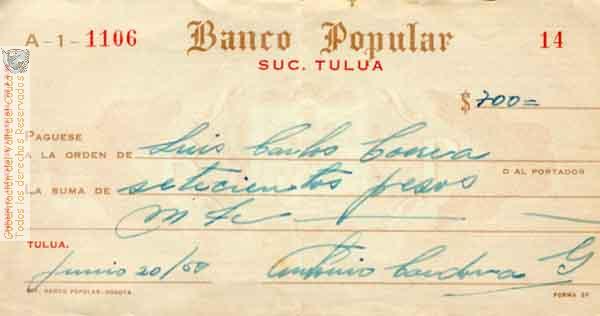 A-1-1106 Banco Popular 14
SUC. TULUA
$ 700=
PAGUESE
A LA ORDEN DE Luis Carlos Correa O AL PORTADOR
LA SUMA DE setecientos pesos
m/c
TULUA.
Junio 20/50 Antonio Cardona G
IMP. BANCO POPULAR-BOGOTA. FORMA 2F
Gobernación del Valle del Cauca
Todos los derechos Reservados